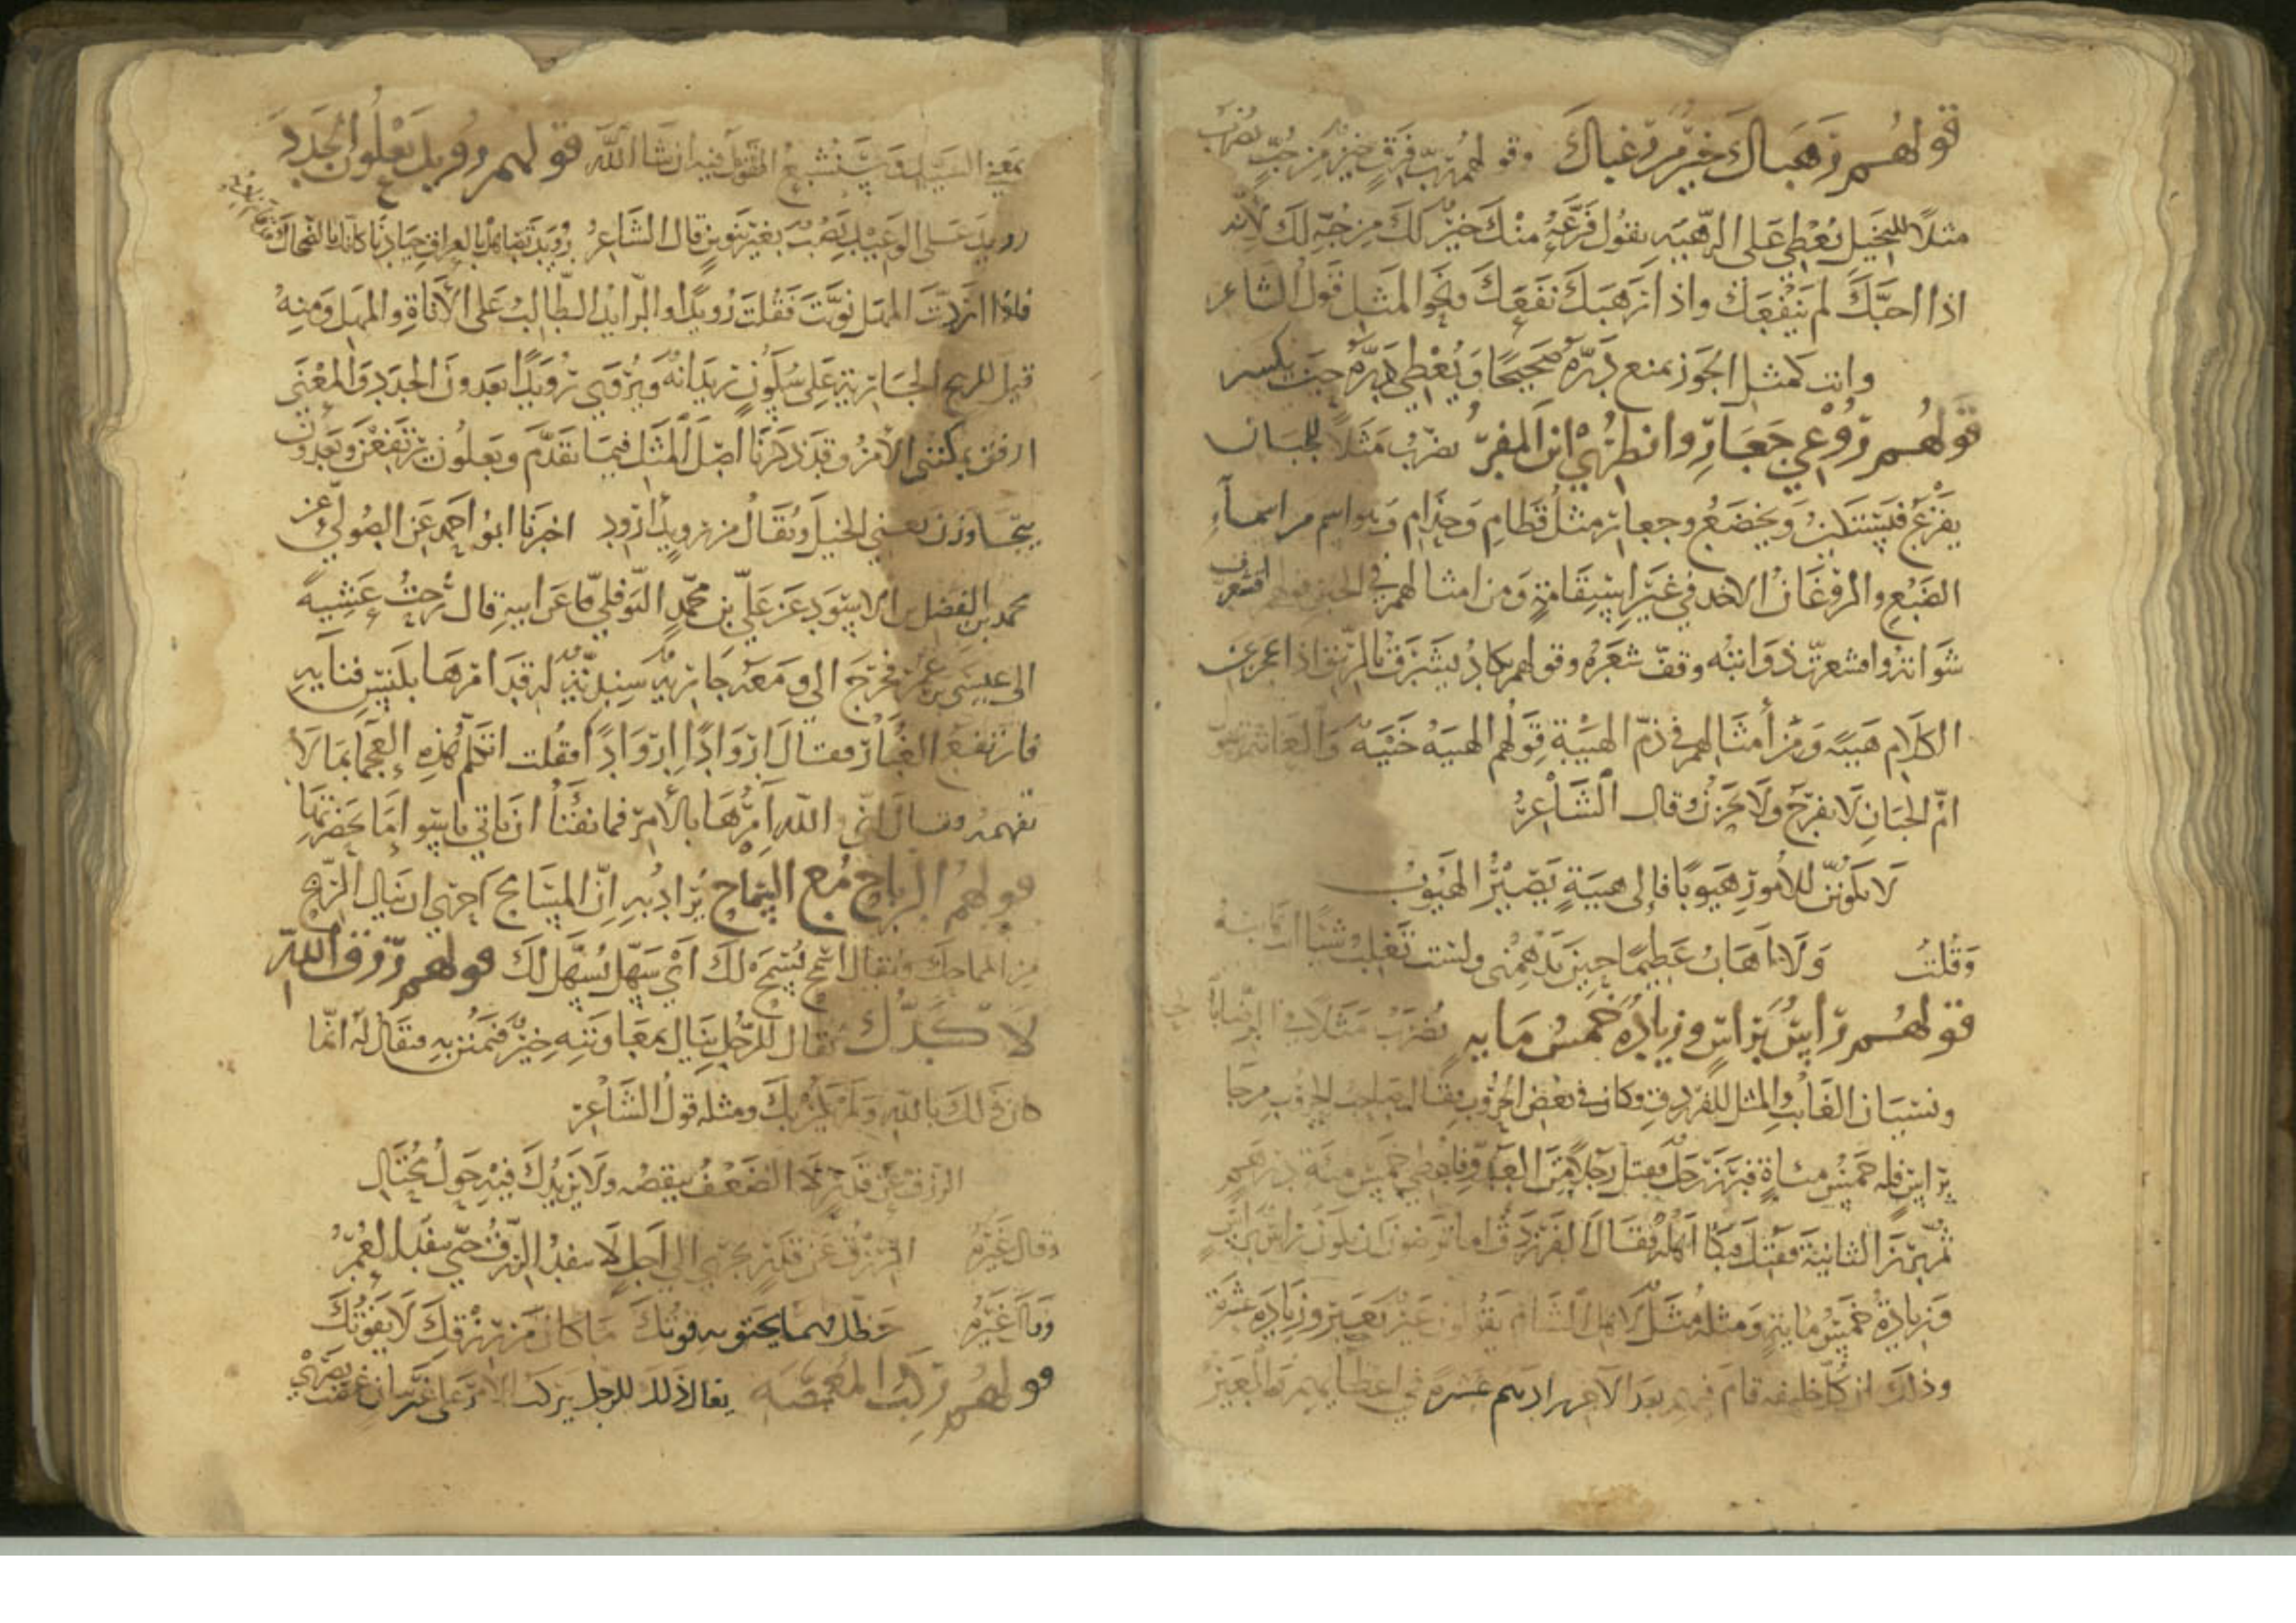 قولهم رهباك خير من رغباك وقولهم رب فرق خير من حب يضرب
مثلا للبخيل يعطي على الرهبة يقول فزعه منك خير لك من حبه لك لانه
اذا احبك لم ينفعك واذا ارهبك نفعك ونحو المثل قول الشاعر
وانت كمثل الجوز يمنع دره صحيحا ويعطي دره حين يكسر
قولهم روغي جعار وانظري اين المفر يضرب مثلا للجبان
يفزع فيستكين ويخضع وجعار مثل قطام وحذام وهو اسم من اسماء
الضبع والروغان الاخذ في غير استقامة ومن امثالهم في الجبن قولهم اقشعرت
شواته واقشعرت ذوابته وقف شعره وقولهم يكاد يشرق بالريق اذا عجز عن
الكلام هيبة ومن أمثالهم في ذم الهيبة قولهم الهيبة خيبة والعامة تقول
ام الجبان لا تفرح ولا تحزن وقال الشاعر
لا تكونن للامور هيوبا فالى هيبة يصير الهيوب
وقلت ولا اهاب عظيما حين يدهمني ولست تغلب شيئا انت هائبه
قولهم راس براس وزيادة خمس مايه يضرب مثلا في الرضا بالحاضر
ونسيان الغائب والمثل للفرزدق وكان في بعض الحروب فقال صاحب الحروب من جا
براس فله خمس مئاة فبرز رجل فقتل رجلا من العدو فاعطي خمس مئة درهم
ثم برز الثانية فقتل فبكا اهله فقال الفرزدق اما ترضون ان يكون راس براس
وزيادة خمس مايه ومثله مثل لاهل الشام يقولون عير بعير وزيادة عشرة
وذلك ان كل خليفه قام فيهم بعد الآخر زادهم عشرة في اعطياتهم والعير
بمعنى السيد وسنشبع القول فيه ان شا الله قولهم رويد يعلون الجدد
رويد على الوعيد نصب بغير تنوين قال الشاعر رويد تصاهل بالعراق جيادنا كانك بالضحاك قد قام نادبه
فاذا اردت المهل نونت فقلت رويدا والرايد الطالب على الاناة والمهل ومنه
قيل للريح الجارية على سكون ريدانة ويروى رويدا يعدون الجدد والمعنى
ارفق يمكنك الامر وقد ذكرنا اصل المثل فيما تقدم ويعلون يرتفعن ويعدون
يتجاوزن يعني الخيل ويقال من رويد ارود اخبرنا ابو احمد عن الصولي عن
محمد بن الفضل بن الاسود عن علي بن محمد النوفلي عن ابيه قال رحت عشية
الى عيسى بن فخرج الي ومعه جارية سندية له قد امرها بكنس فنايه
فارتفع الغبار فقال اروادا اروادا فقلت اتكلم هذه العجما بما لا
تفهمه وقال اني والله آمرها بالامر فما تفتأ ان تاتي
قولهم الرباح مع السماح يراد به ان المسامح احرى ان ينال الربح
من المماحك ويقال اسمح يسمح لك اي سهل يسهل لك قولهم رزق الله
لا كدك يقال للرجل ينال بمعاونته خير فيمتن به فيقال له انما
كان ذلك بالله ولم يكن بك ومثله قول الشاعر
الرزق عن قدر لا الضعف ينقصه ولا يزيدك فيه حول محتال
وقال غيره الرزق عن قدر يجري الى اجل لا ينفد الرزق حتى ينفد العمر
وقال غيره ما كان من رزقك لا يفوتك
قولهم ركب المغمضة يقال ذلك للرجل يركب الامر على غير بيان